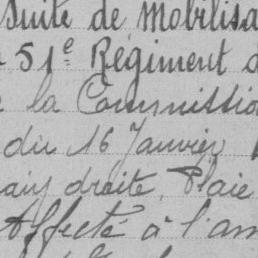 suite de mobilisa
51e Régiment d
la Commission
du 16 Janvier
droite, Plaie
Affecté à l'am